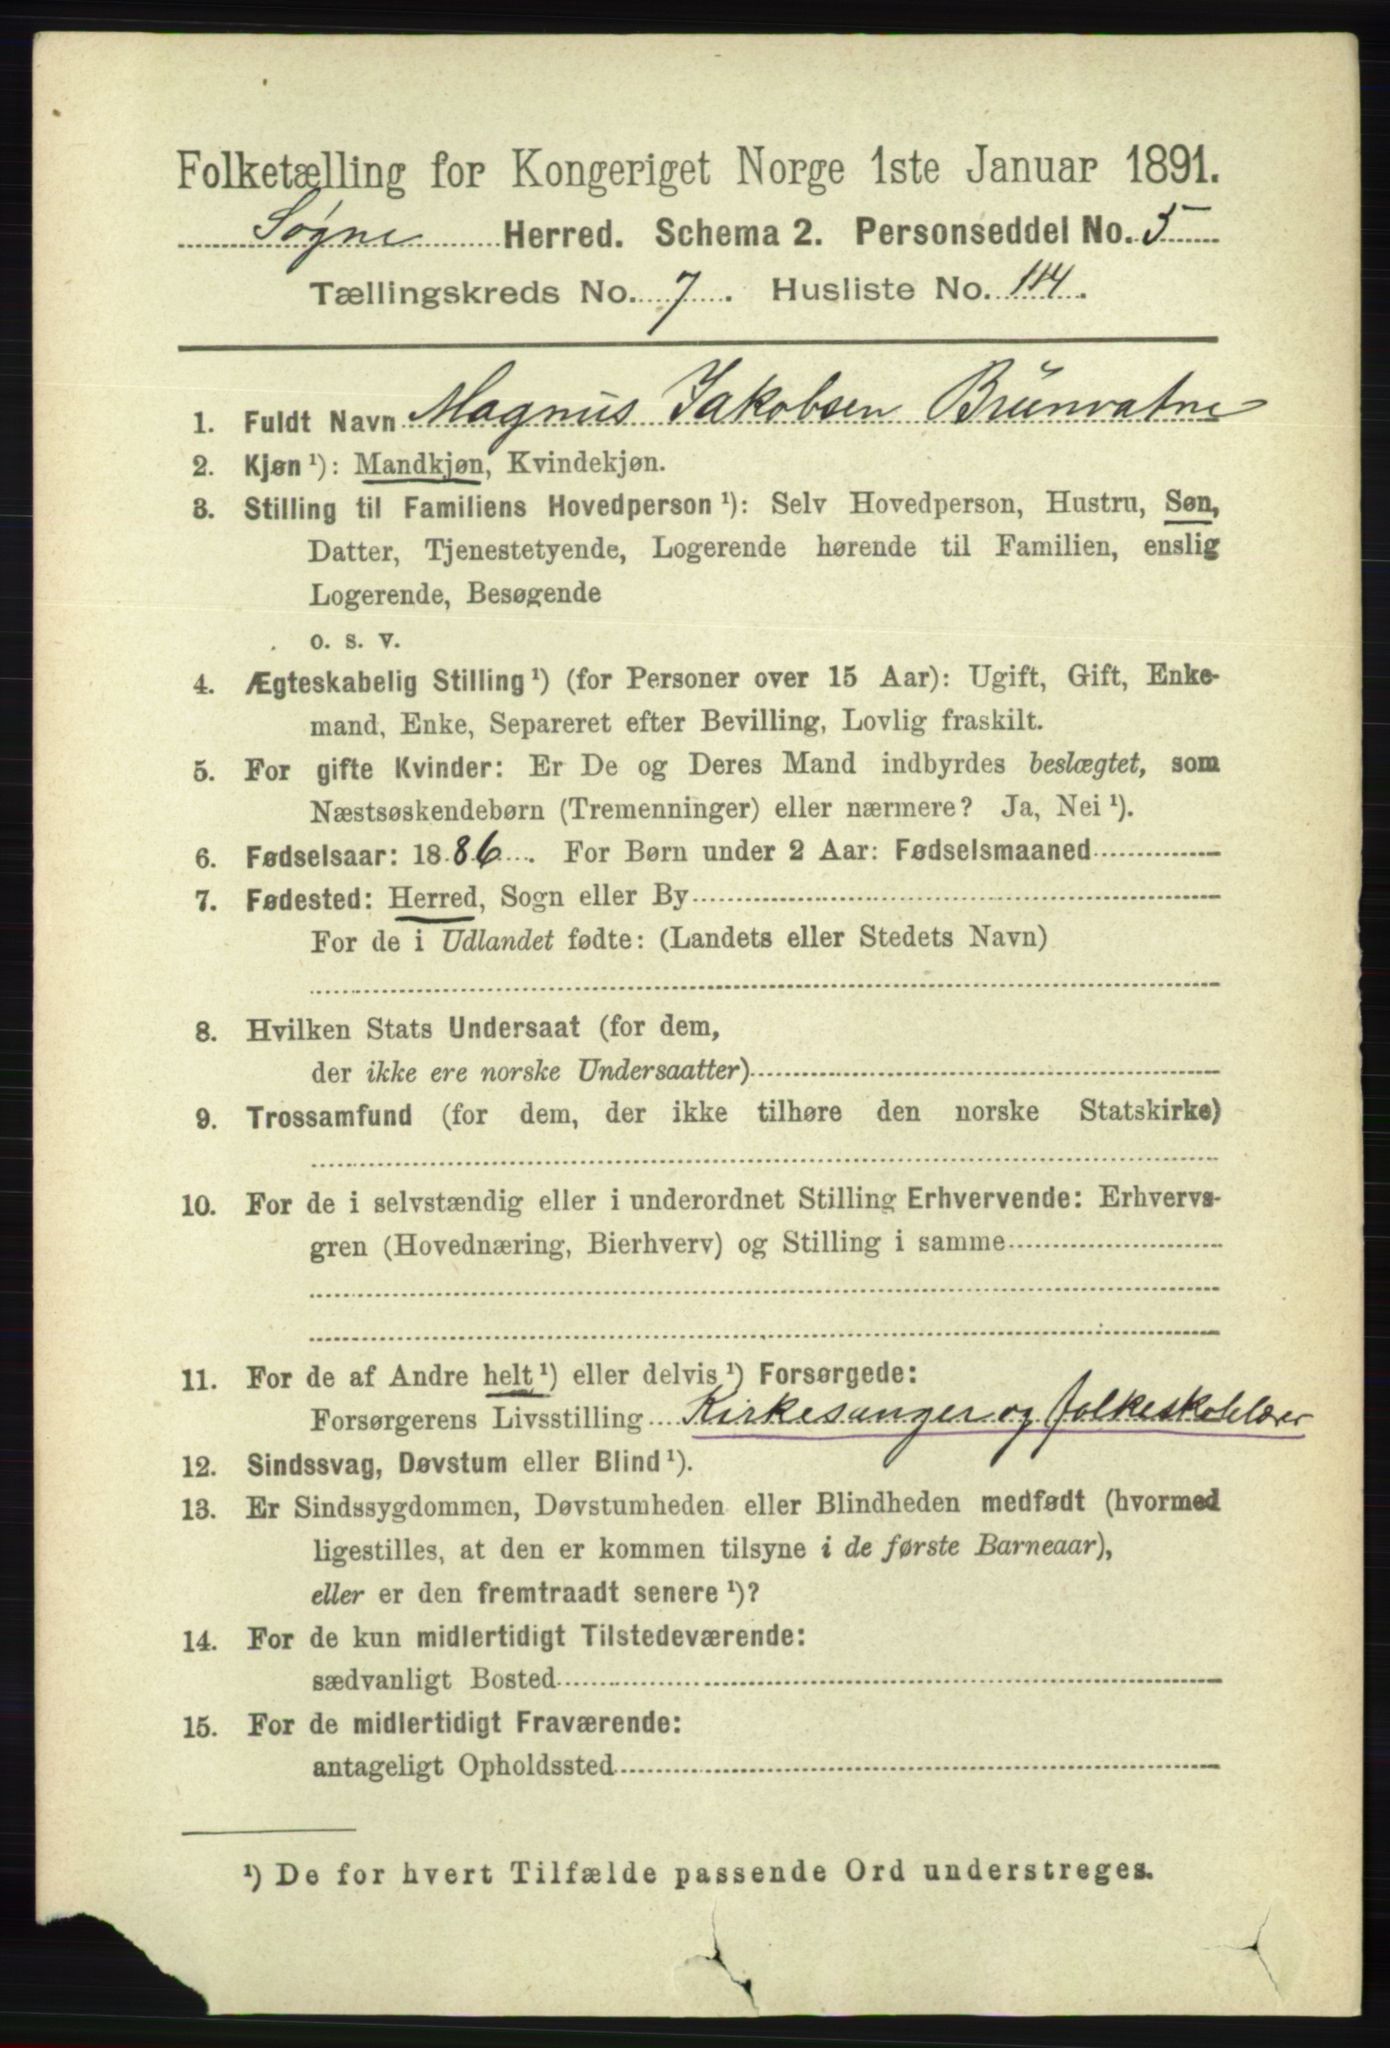 Folketælling for Kongeriget Norge 1ste Januar 1891.
Søgne Herred. Schema 2. Personseddel No. 5
Tællingskreds No. 7. Husliste No. 114.
1. Fuldt Navn Magnus Jakobsen Brünvatne
2. Kjøn ¹): Mandkjøn, Kvindekjøn.
3. Stilling til Familiens Hovedperson ¹): Selv Hovedperson, Hustru, Søn,
Datter, Tjenestetyende, Logerende hørende til Familien, enslig
Logerende, Besøgende
o. s. v.
4. Ægteskabelig Stilling ¹) (for Personer over 15 Aar): Ugift, Gift, Enke-
mand, Enke, Separeret efter Bevilling, Lovlig fraskilt.
5. For gifte Kvinder: Er De og Deres Mand indbyrdes beslægtet, som
Næstsøskendebørn (Tremenninger) eller nærmere? Ja, Nei ¹).
6. Fødselsaar: 1886. For Børn under 2 Aar: Fødselsmaaned
7. Fødested: Herred, Sogn eller By
For de i Udlandet fødte: (Landets eller Stedets Navn)
8. Hvilken Stats Undersaat (for dem,
der ikke ere norske Undersaatter)
9. Trossamfund (for dem, der ikke tilhøre den norske Statskirke)
10. For de i selvstændig eller i underordnet Stilling Erhvervende: Erhvervs-
gren (Hovednæring, Bierhverv) og Stilling i samme
11. For de af Andre helt ¹) eller delvis ¹) Forsørgede:
Forsørgerens Livsstilling Kirkesanger og folkeskolelærer
12. Sindssvag, Døvstum eller Blind ¹).
13. Er Sindssygdommen, Døvstumheden eller Blindheden medfødt (hvormed
ligestilles, at den er kommen tilsyne i de første Barneaar),
eller er den fremtraadt senere ¹)?
14. For de kun midlertidigt Tilstedeværende:
sædvanligt Bosted
15. For de midlertidigt Fraværende:
antageligt Opholdssted
¹) De for hvert Tilfælde passende Ord understreges.